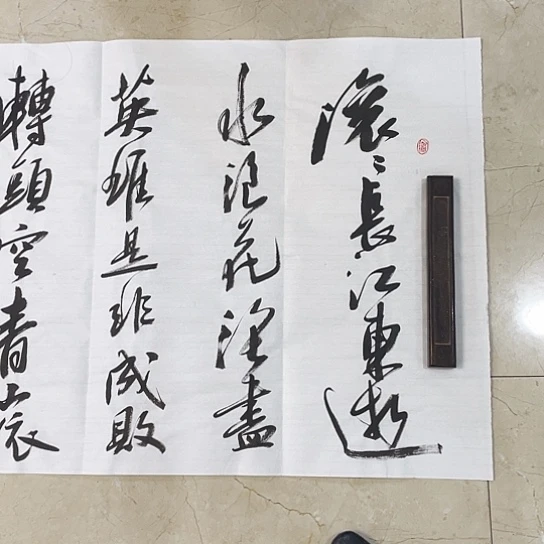 滾〻長江東逝
水浪花淘盡
英雄是非成敗
轉頭空青山依